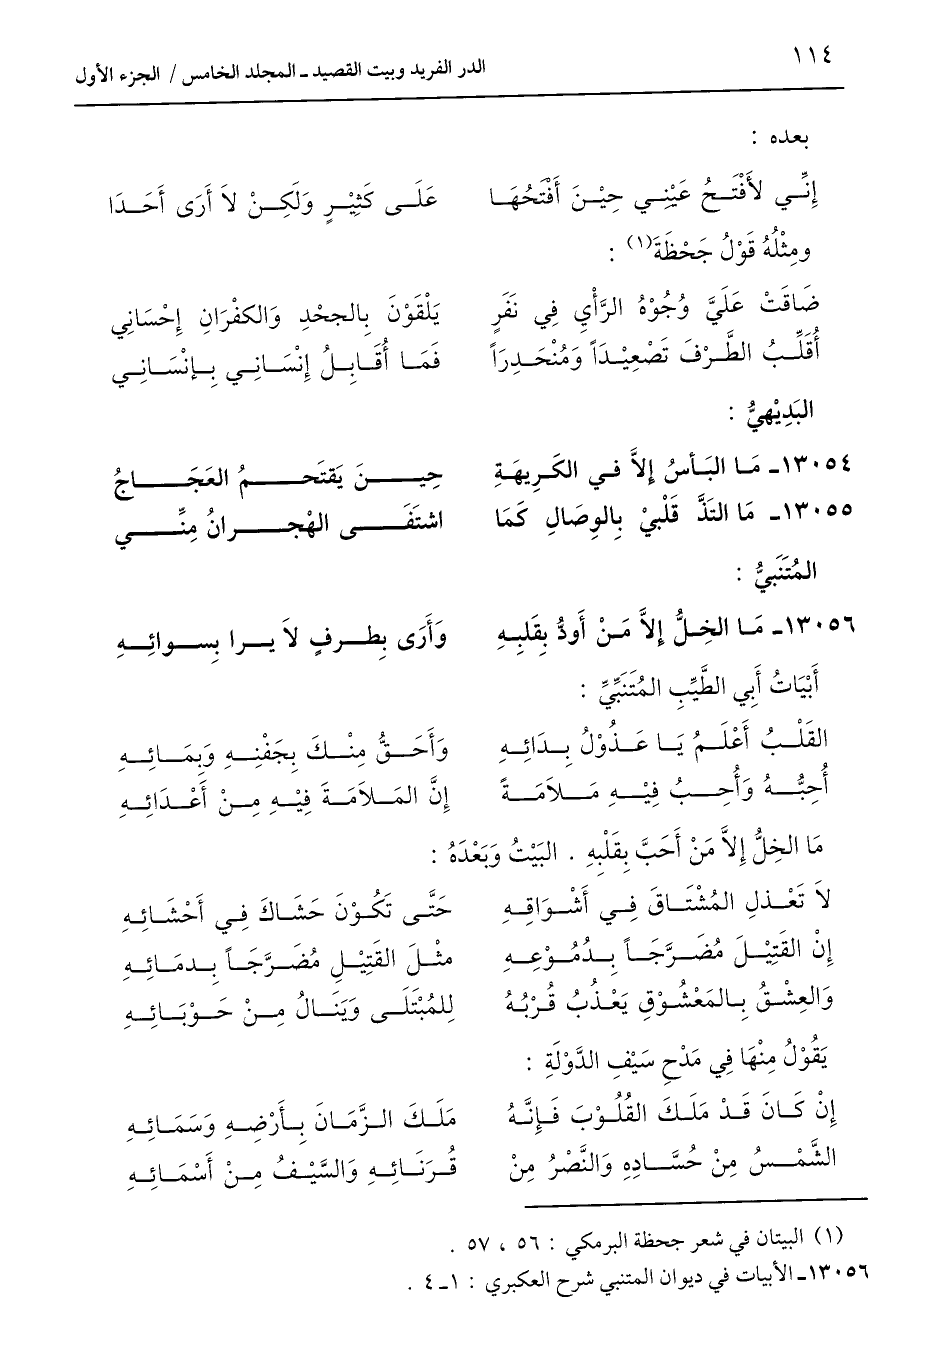 ١١٤
الدر الفريد وبيت القصيد ـ المجلد الخامس / الجزء الأول
بعده :
إِنِّي لأَفْتَحُ عَيْنِي حِيْنَ أَفْتَحُهَا عَلَى كَثِيْرٍ وَلَكِنْ لاَ أَرَى أَحَدَا
ومِثْلُهُ قَوْلُ جَحْظَةَ(١) :
ضَاقَتْ عَلَيَّ وُجُوْهُ الرَّأْيِ فِي نَفَرٍ يَلْقَوْنَ بِالجحْدِ وَالكفْرَانِ إِحْسَانِي
أُقَلِّبُ الطَّرْفَ تَصْعِيْداً وَمُنْحَدِراً فَمَا أُقَابِلُ إِنْسَانِي بِإِنْسَانِي
البَدِيْهِيُّ :
١٣٠٥٤ـ مَا البَأسُ إِلاَّ فِي الكَرِيهَةِ حِينَ يَقتَحمُ العَجَاجُ
١٣٠٥٥ـ مَا التَذَّ قَلْبِيْ بِالوِصَالِ كَمَا اشتَفَى الهُجْرانُ مِنَّي
المُتَنَبِيُّ :
١٣٠٥٦ـ مَا الخِلُّ إِلاَّ مَنْ أَودُّ بِقَلبِهِ وَأَرَى بِطَرفٍ لاَ يرا بِسوائِهِ
أَبْيَاتُ أَبِي الطَّيِّبِ المُتَنَبِّيِّ :
القَلْبُ أَعْلَمُ يَا عَذُوْلُ بِدَائِهِ وَأَحَقُّ مِنْكَ بِجَفْنِهِ وَبِمَائِهِ
أُحِبُّهُ وَأُحِبُّ فِيْهِ مَلاَمَةً إِنَّ المَلاَمَةَ فِيْهِ مِنْ أَعْدَائِهِ
مَا الخِلُّ إِلاَّ مَنْ أَحَبَّ بِقَلْبِهِ . البَيْتُ وَبَعْدَهُ :
لاَ تَعْذلِ المُشْتَاقَ فِي أَشْوَاقِهِ حَتَّى تَكُوْنَ حَشَاكَ فِي أَحْشَائِهِ
إِنْ القَتِيْلَ مُضَرَّجَاً بِدُمُوْعِهِ مثْلَ القَتِيْلِ مُضَرَّجَاً بِدمَائِهِ
وَالعِشْقُ بِالمَعْشُوْقِ يَعْذُبُ قُرْبُهُ لِلمُبْتَلَى وَيَنَالُ مِنْ حَوْبَائِهِ
يَقُوْلُ مِنْهَا فِي مَدْحِ سَيْفِ الدَّوْلَةِ :
إِنْ كَانَ قَدْ مَلَكَ القُلُوْبَ فَإِنَّهُ مَلَكَ الزَّمَانَ بِأَرْضِهِ وَسَمَائِهِ
الشَّمْسُ مِنْ حُسَّادِهِ وَالنَّصْرُ مِنْ قُرَنَائِهِ وَالسَّيْفُ مِنْ أَسْمَائِهِ
(١) البيتان في شعر جحظة البرمكي : ٥٦ ، ٥٧ .
١٣٠٥٦ـ الأبيات في ديوان المتنبي شرح العكبري : ١ـ٤ .